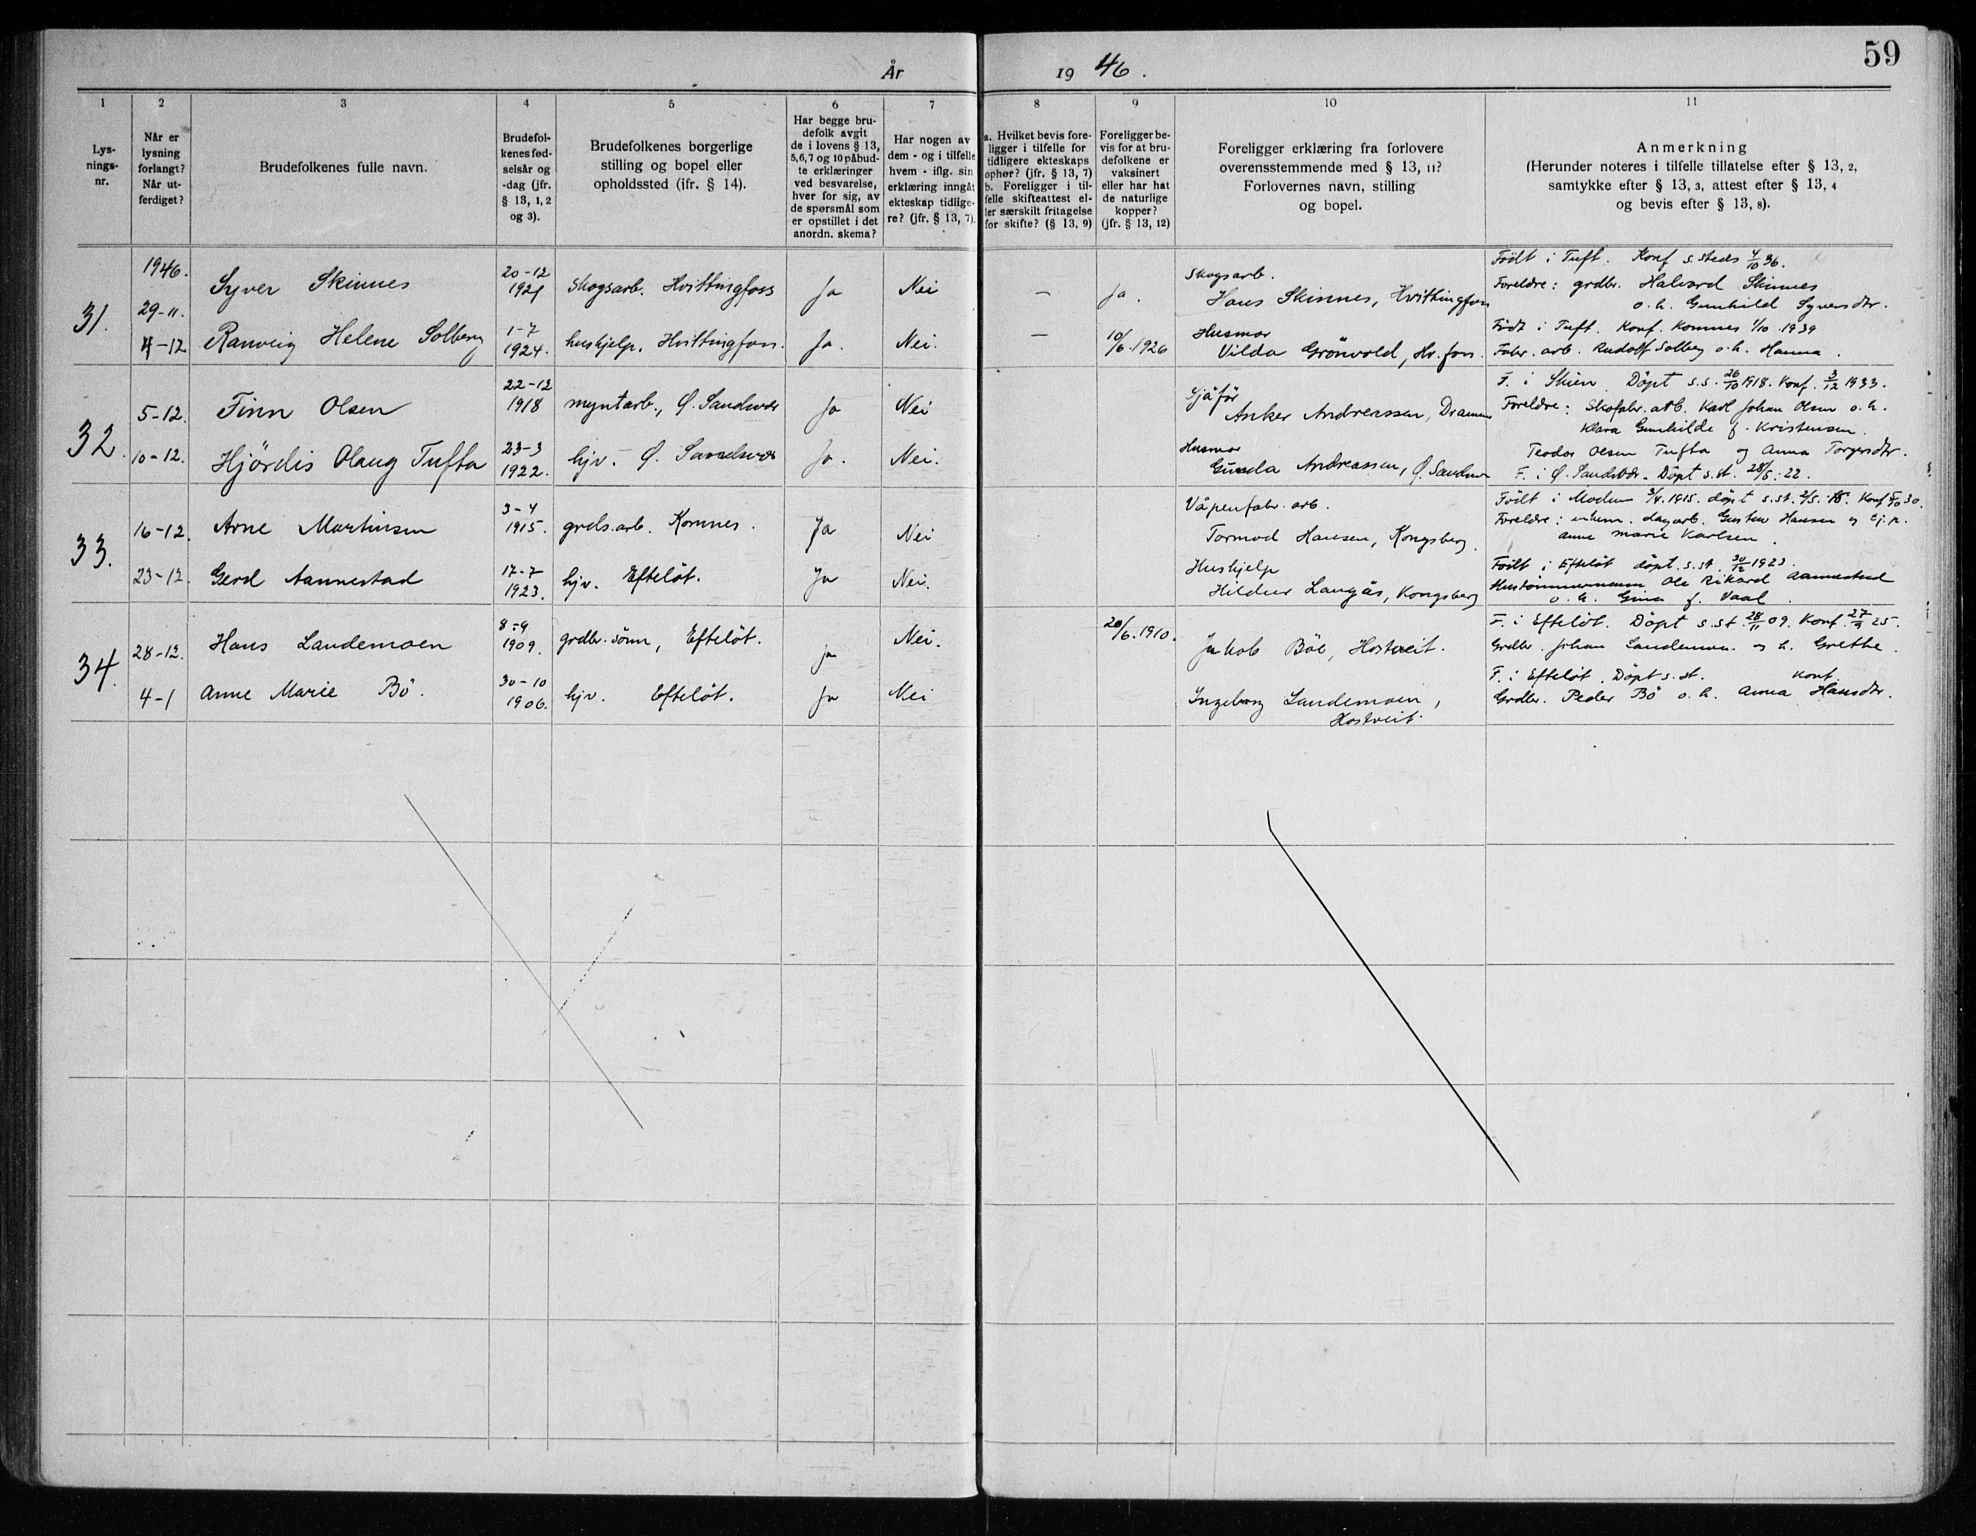 59
År 1946.
1 2 3 4 5 6 7 8 9 10 11
Lys-
nings-
nr.
Når er
lysning
forlangt?
Når ut-
ferdiget?
Brudefolkenes fulle navn.
Brudefol-
kenes fød-
selsår og
-dag (jfr.
§ 13, 1, 2
og 3).
Brudefolkenes borgerlige
stilling og bopel eller
opholdssted (jfr. § 14).
Har begge bru-
defolk avgit
de i lovens § 13,
5,6,7 og 10 påbud-
te erklæringer
ved besvarelse,
hver for sig, av
de spørsmål som
er opstillet i det
anordn. skema?
Har nogen av
dem - og i tilfelle
hvem - iflg. sin
erklæring inngått
ekteskap tidlige-
re? (jfr. § 13, 7).
a. Hvilket bevis fore-
ligger i tilfelle for
tidligere ekteskaps
ophør? (jfr. § 13, 7)
b. Foreligger i til-
felle skifteattest el-
ler særskilt fritagelse
for skifte? (§ 13, 9)
Foreligger be-
vis for at bru-
defolkene er
vaksinert
eller har hat
de naturlige
kopper?
(jfr. § 13, 12)
Foreligger erklæring fra forlovere
overensstemmende med § 13, 11?
Forlovernes navn, stilling
og bopel.
Anmerkning
(Herunder noteres i tilfelle tillatelse efter § 13, 2,
samtykke efter § 13, 3, attest efter § 13, 4
og bevis efter § 13, 8).
31.
1946.
29-11.
4-12
Syver Skinnes
20-12
1921
Skogsarb. Hvittingfoss
Ja
Nei
—
Ja.
Skogsarb.
Hans Skinnes, Hvittingfoss
Født i Tuft. Konf s.steds 4/10 36.
Foreldre: grdbr. Halvard Skinnes
o. h. Gunhild Syversdtr.
Ranveig Helene Solberg
1-7
1924.
hushjelp, Hvittingfoss.
Ja.
Nei.
—
10/6.1926
Husmor
Vilda Grönvold, Hv.foss.
Født i Tuft. Konf. Komnes 1/10 1939
Fabr. arb. Rudolf Solberg o.h. Hanna.
32.
5-12.
10-12.
Finn Olsen
22-12
1918
myntarb., Ø. Sandsvær
Ja
Nei
Sjåfør
Anker Andreassen, Drammen
F. i Skien. Döpt s.s. 26/10 1918. Konf. 3/12 1933.
Foreldre: Skofabr. arb. Karl Johan Olsen o.h.
Klara Gunhilde f. Kristensen.
Hjördis Olaug Tufta
23-3
1922.
hjv. Ø. Sandsvær
Ja.
Nei.
Husmor
Gunda Andreassen, Ø. Sandsvær
Teodor Olsen Tufta og Anna Torgersdtr.
F. i Ø. Sandsvær. Döpt s.st. 28/5.22.
33.
16-12.
23-12
Arne Martinsen
3-4
1915.
grds.arb. Komnes.
Ja
Nei
Våpenfabr. arb.
Tormod Hansen, Kongsberg.
Født i Modum 3/4.1915. döpt s.st. 2/5.15. Konf 30.
Foreldre: dagarb. Gustav Hansen og
Anne Marie Karlsen.
Gerd Aannestad
17-7
1923.
hjv. Efteløt.
Ja
Nei.
Hushjelp
Hildur Langås, Kongsberg
Født i Efteløt döpt s.st. 30/12 1923.
Hustømmermann Ole Rikard Aannestad
o. h. Gina f. Vaal.
34.
28-12.
4-1
Hans Landemoen
8-9
1909.
grdbr. sönn, Efteløt.
ja
Nei.
20/6.1910.
Jakob Böe, Hostveit.
F. i Efteløt. Döpt s.st. 28/11 09. Konf. 27/9 25.
Grdbr. Johan Landemoen og h. Grethe.
Anne Marie Bö.
30-10
1906.
hjv. Efteløt.
Ja
Nei
Ingeborg Landemoen,
Hostveit.
F. i Efteløt. Döpt s.st. Konf.
Grdbr. Peder Bö o.h. Anna Hansdtr.